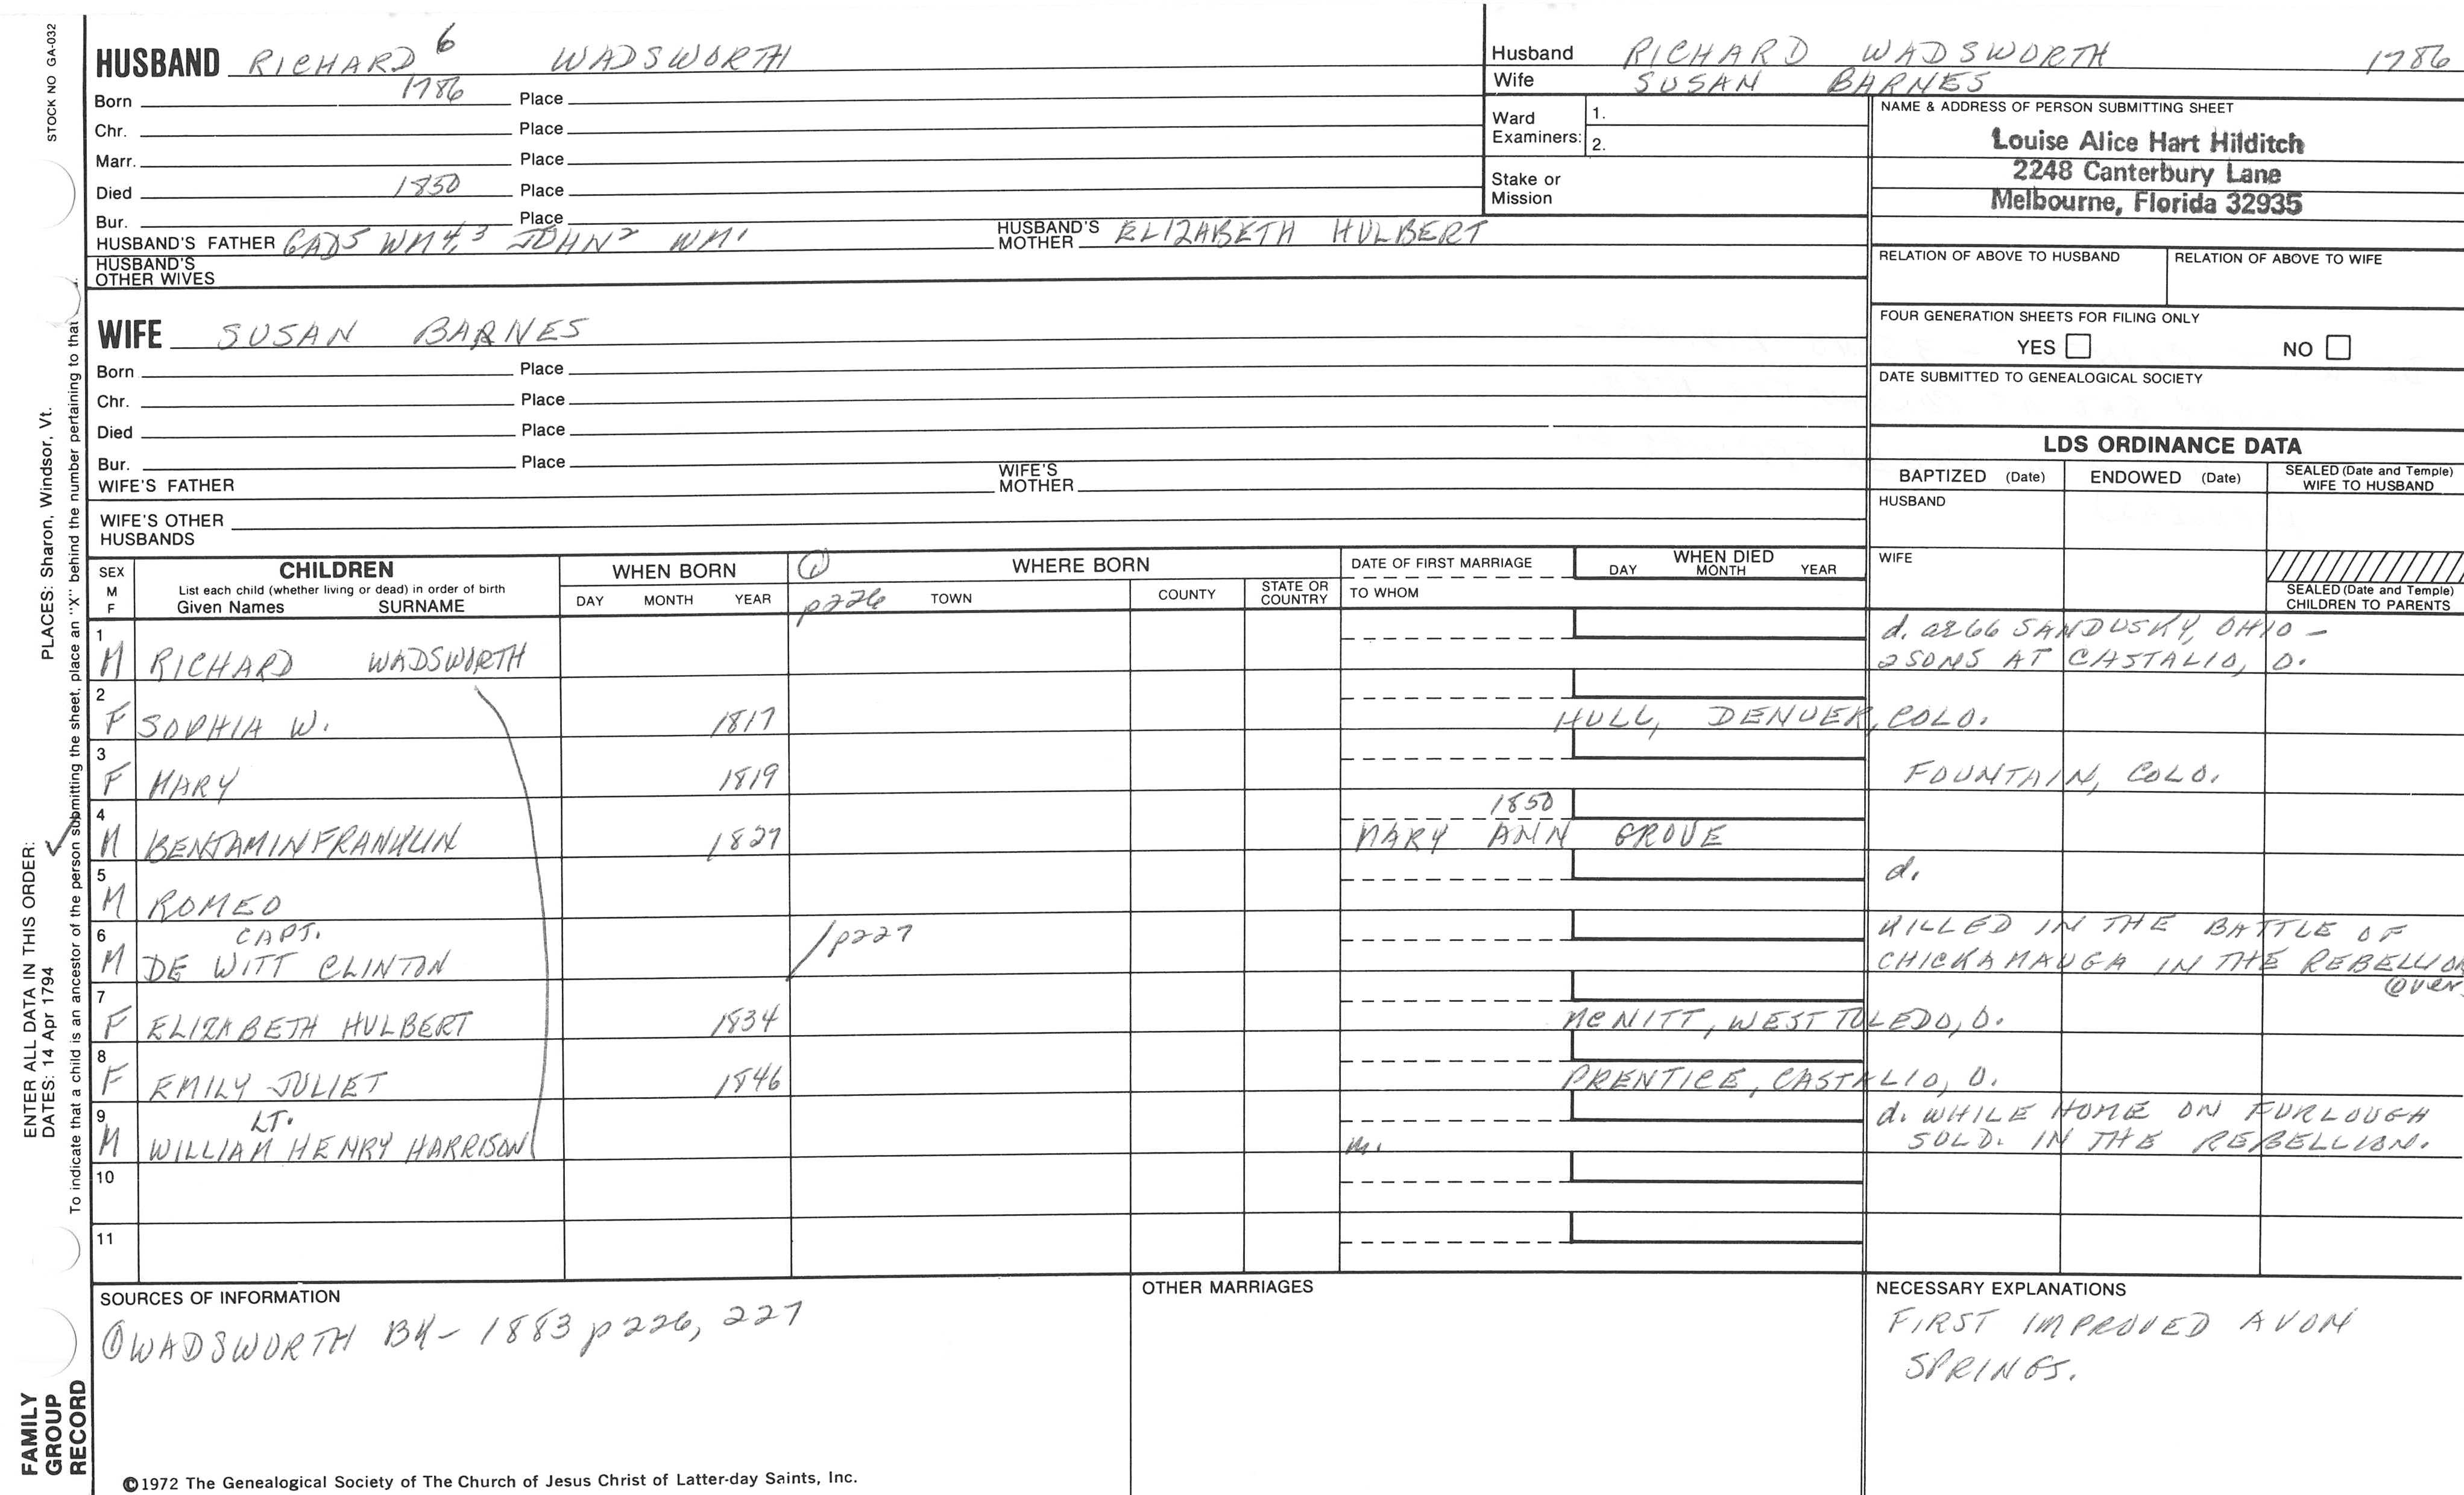 STOCK NO GA-032
PLACES: Sharon, Windsor, Vt.
ENTER ALL DATA IN THIS ORDER:
DATES: 14 Apr 1794
To indicate that a child is an ancestor of the person submitting the sheet, place an "X" behind the number pertaining to that
FAMILY
GROUP
RECORD
HUSBAND RICHARD 6 WADSWORTH
Born 1786 Place
Chr. Place
Marr. Place
Died 1850 Place
Bur. Place
HUSBAND'S FATHER GAD5 WM4,3 JOHN2 WM1 HUSBAND'S MOTHER ELIZABETH HULBERT
HUSBAND'S
OTHER WIVES
Husband RICHARD WADSWORTH 1786
Wife SUSAN BARNES
Ward
Examiners: 1.
2.
Stake or
Mission
NAME & ADDRESS OF PERSON SUBMITTING SHEET
Louise Alice Hart Hilditch
2248 Canterbury Lane
Melbourne, Florida 32935
RELATION OF ABOVE TO HUSBAND RELATION OF ABOVE TO WIFE
FOUR GENERATION SHEETS FOR FILING ONLY
YES NO
DATE SUBMITTED TO GENEALOGICAL SOCIETY
WIFE SUSAN BARNES
Born Place
Chr. Place
Died Place
Bur. Place
WIFE'S FATHER WIFE'S MOTHER
WIFE'S OTHER
HUSBANDS
LDS ORDINANCE DATA
BAPTIZED (Date) ENDOWED (Date) SEALED (Date and Temple)
WIFE TO HUSBAND
HUSBAND
WIFE
SEALED (Date and Temple)
CHILDREN TO PARENTS
SEX
M
F
CHILDREN
List each child (whether living or dead) in order of birth
Given Names SURNAME
WHEN BORN
DAY MONTH YEAR
① WHERE BORN
p226 TOWN COUNTY STATE OR COUNTRY
DATE OF FIRST MARRIAGE
TO WHOM
WHEN DIED
DAY MONTH YEAR
1 d. ae 66 SANDUSKY, OHIO -
M RICHARD WADSWORTH 2 SONS AT CASTALIO, O.
2
F SOPHIA W. 1817 HULL, DENVER, COLO.
3
F MARY 1819 FOUNTAIN, COLO.
4 1850
✓ M BENJAMIN FRANKLIN 1827 MARY ANN GROVE
5 d.
M ROMEO
6 CAPT. /p227 KILLED IN THE BATTLE OF
M DE WITT CLINTON CHICKAMAUGA IN THE REBELLION
7 over
F ELIZABETH HULBERT 1834 MCNITT, WEST TOLEDO, O.
8
F EMILY JULIET 1846 PRENTICE, CASTALIO, O.
9 LT. d. WHILE HOME ON FURLOUGH
M WILLIAM HENRY HARRISON m. SOLD. IN THE REBELLION.
10
11
SOURCES OF INFORMATION
① WADSWORTH BK - 1883 p226, 227
OTHER MARRIAGES
NECESSARY EXPLANATIONS
FIRST IMPROVED AVON
SPRINGS.
©1972 The Genealogical Society of The Church of Jesus Christ of Latter-day Saints, Inc.